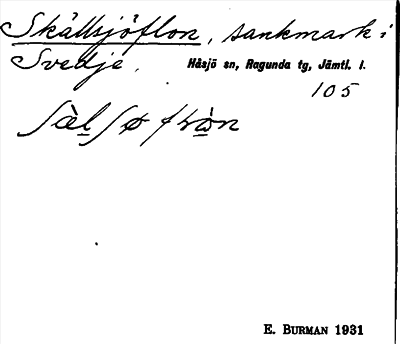 Skällsjöflon, sankmark i
Svedje. Håsjö sn, Ragunda tg, Jämtl. l.
105
E. BURMAN 1931